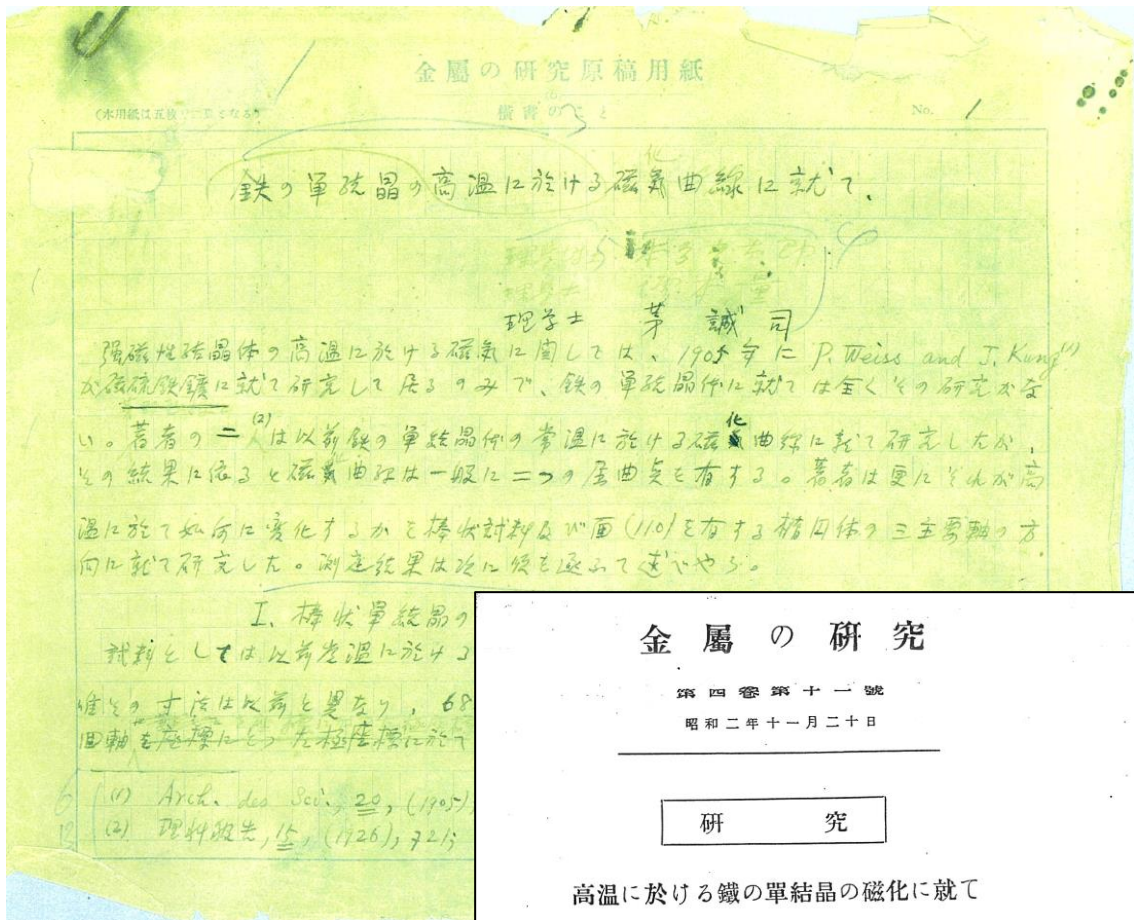 金屬の研究原稿用紙
(本用紙は五枚で一頁となる)
楷書のこと
No. 1
鉄の単結晶の高温に於ける磁気曲線に就て.
化
理学士 茅 誠司
強磁性結晶体の高温に於ける磁気に関しては、1905年に P. Weiss and J. Kunz(1)
が磁硫鉄鑛に就て研究して居るのみで、鉄の単結晶体に就ては全くその研究がな
い。著者の二人(2)は以前鉄の単結晶体の常温に於ける磁化曲線に就て研究したが、
その結果に依ると磁気曲線は一般に二つの屈曲点を有する。著者は更にそれが高
温に於て如何に変化するかを棒状試料及び面(110)を有する楕円体の三主要軸の方
向に就て研究した。測定結果は次に項を逐ふて述べやう。
I. 棒状単結晶の
試料としては以前常温に於ける
唯その寸法は以前と異なり, 68
(1) Arch. des Sci., 20, (1905)
(2) 理科報告, 15, (1926), 721;
金屬の研究
第四卷第十一號
昭和二年十一月二十日
研 究
高温に於ける鐵の單結晶の磁化に就て